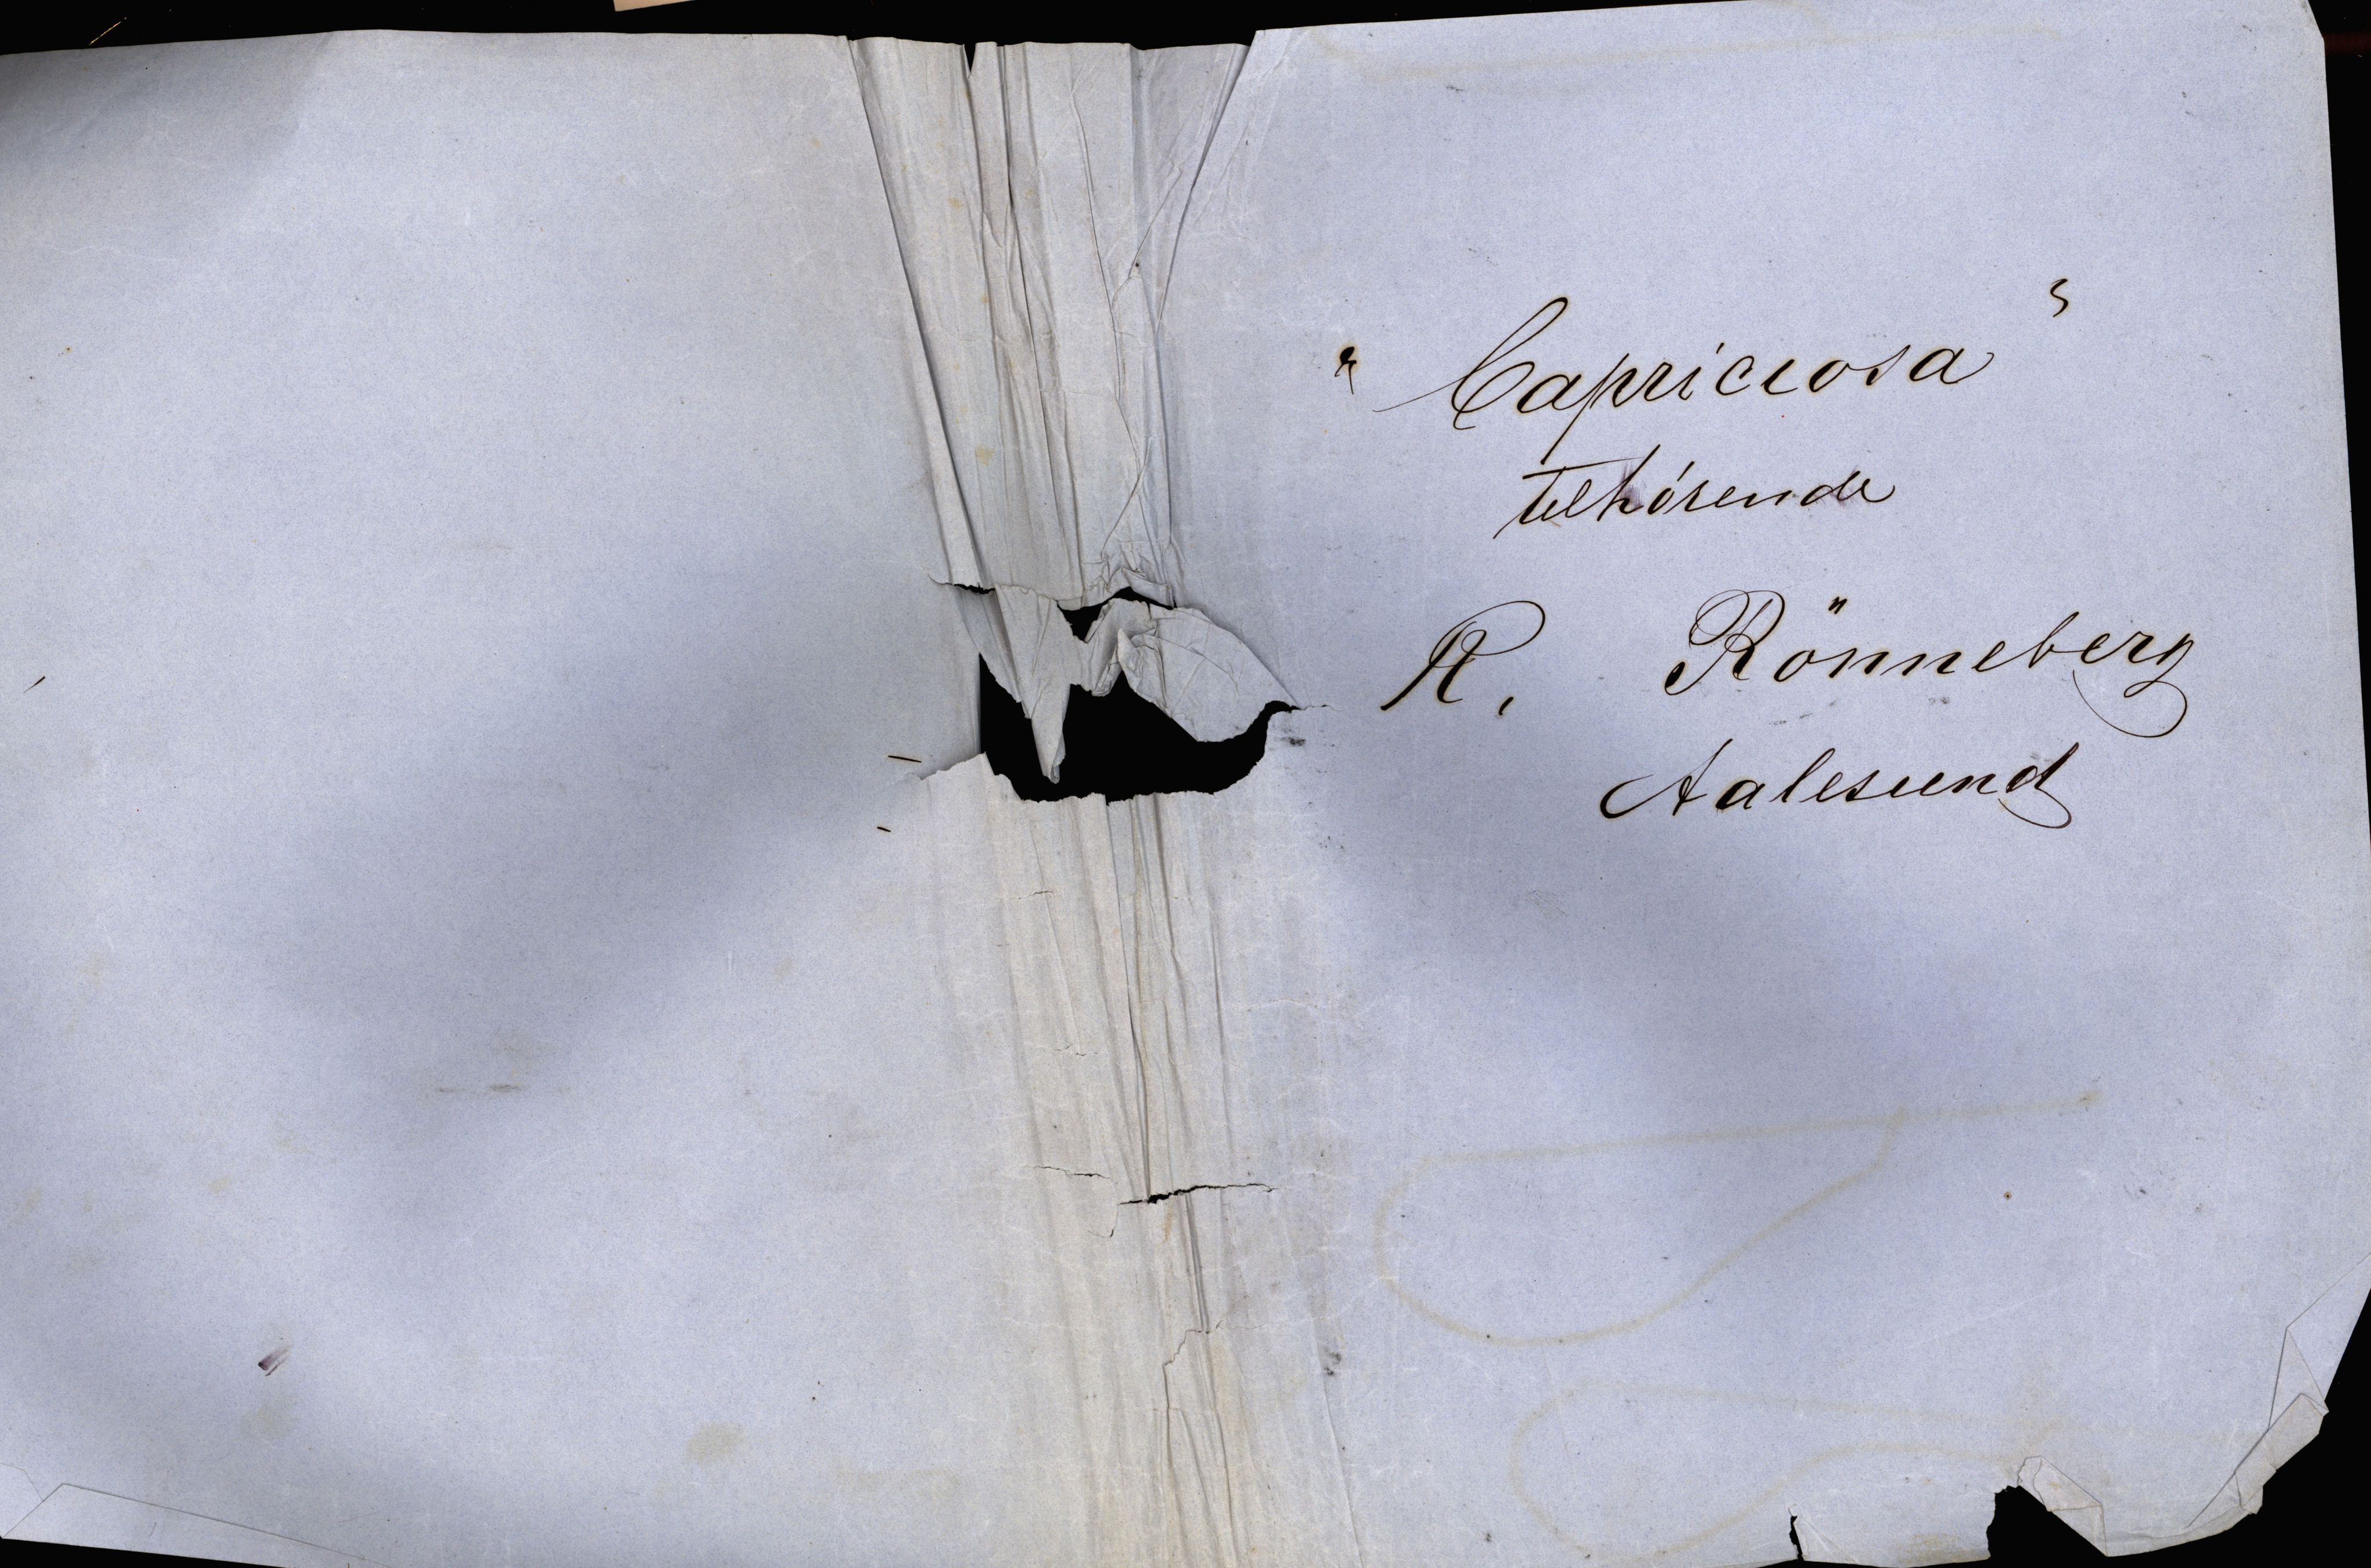 "Capriciosa"
tilhörende
R. Rönneberg
Aalesund